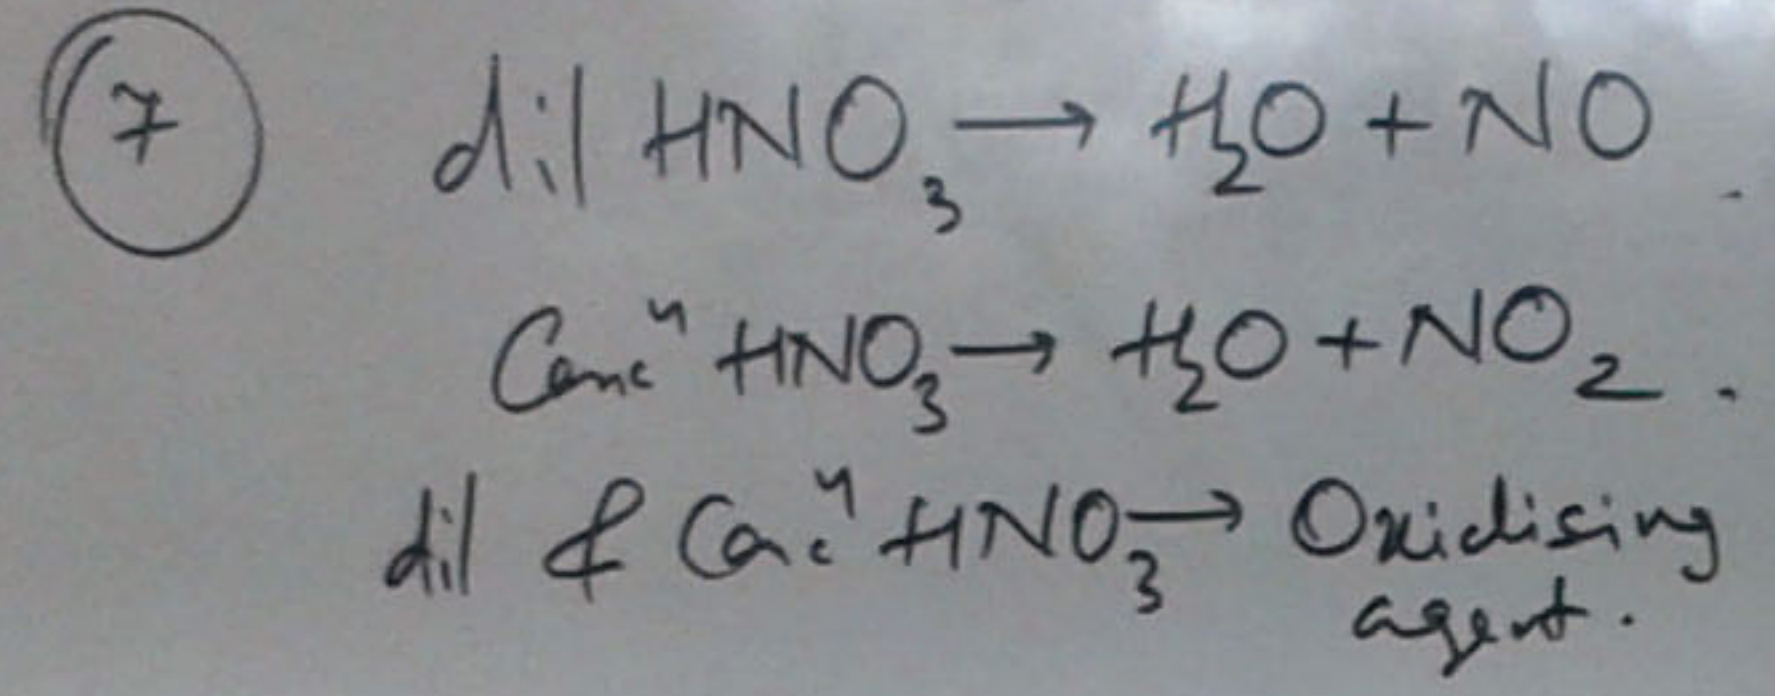 7 dil HNO₃ → H₂O + NO.
Concⁿ HNO₃ → H₂O + NO₂.
dil & Concⁿ HNO₃ → Oxidising
agent.